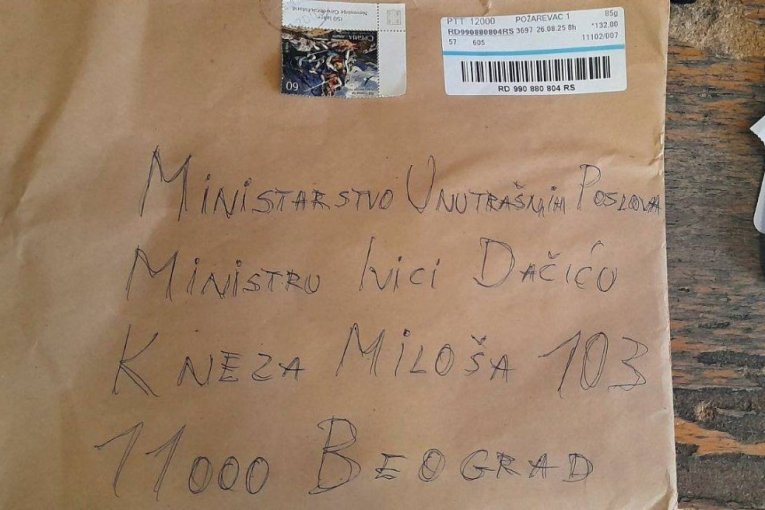 PTT 12000 POŽAREVAC 1 85g
RD990880804RS 3697 26.08.25 8h *132.00
57 605 11102/007
RD 990 880 804 RS
60
MINISTARSTVO UNUTRAŠNJIH POSLOVA
MINISTRU IVICI DAČIĆU
KNEZA MILOŠA 103
11000 BEOGRAD